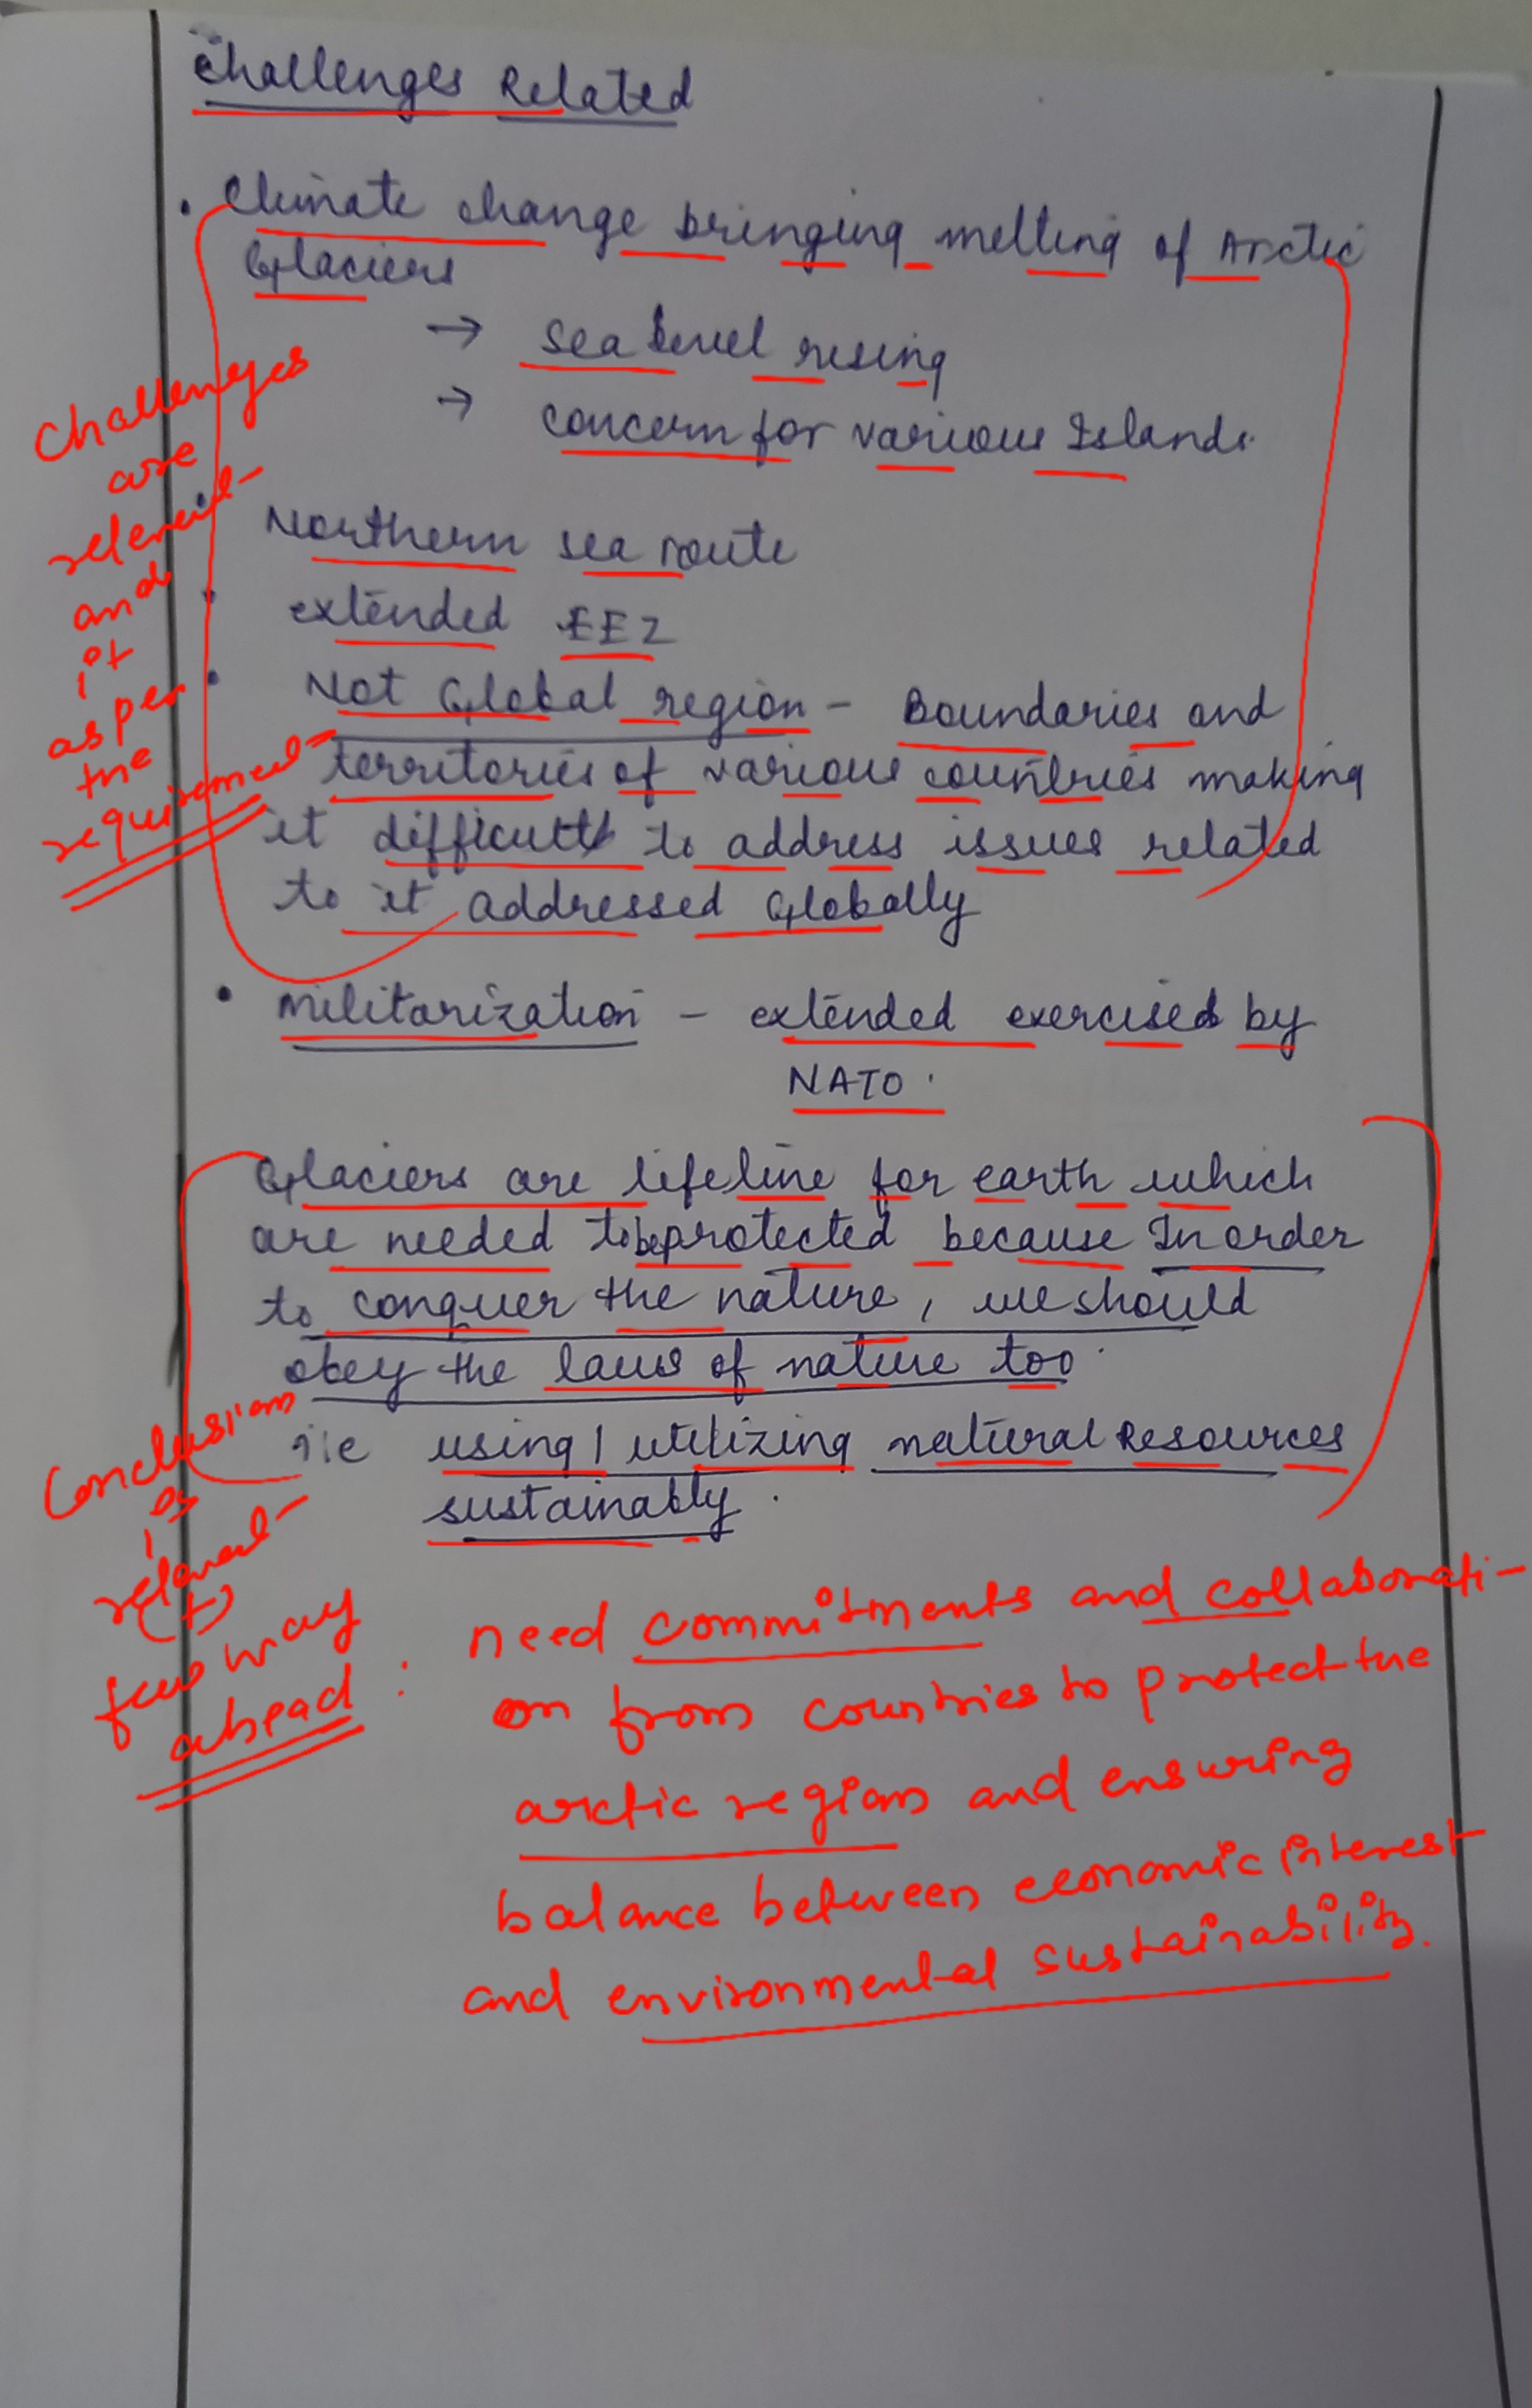 Challenges Related
• Climate change bringing melting of Arctic
Glaciers
→ Sea level rising
→ concern for various Islands.
• Northern sea route
• extended EEZ
• Not Global region - Boundaries and
territories of various countries making
it difficult to address issues related
to it addressed Globally
• Militarization - extended exercised by
NATO.
Challenges
are
relevant
and
it
as per
the
requirement
Glaciers are lifeline for earth which
are needed to be protected because In order
to conquer the nature, we should
obey the laws of nature too.
i.e using / utilizing natural Resources
sustainably.
Conclusion
is
relevant
(t)
few way
ahead :
need commitments and collaborati-
on from countries to protect the
arctic region and ensuring
balance between economic interest
and environmental sustainability.